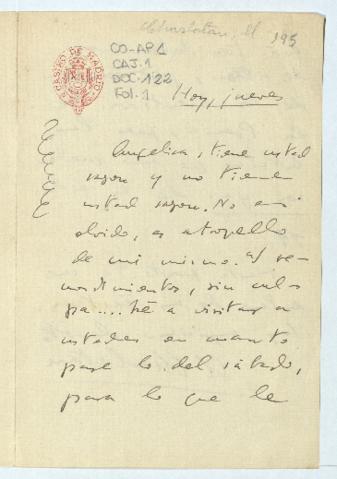 195
CASINO DE MADRID
CO-APA
CAJ.1
DOC.122
Fol.1
Hoy, jueves
Angelica, tiene usted
razon y no tiene
usted razon. No es
olvido, es atropello
de mi mismo. Y re-
mordimientos, sin cul-
pa.... Iré a visitar a
ustedes en cuanto
pase lo del sábado,
para lo que le